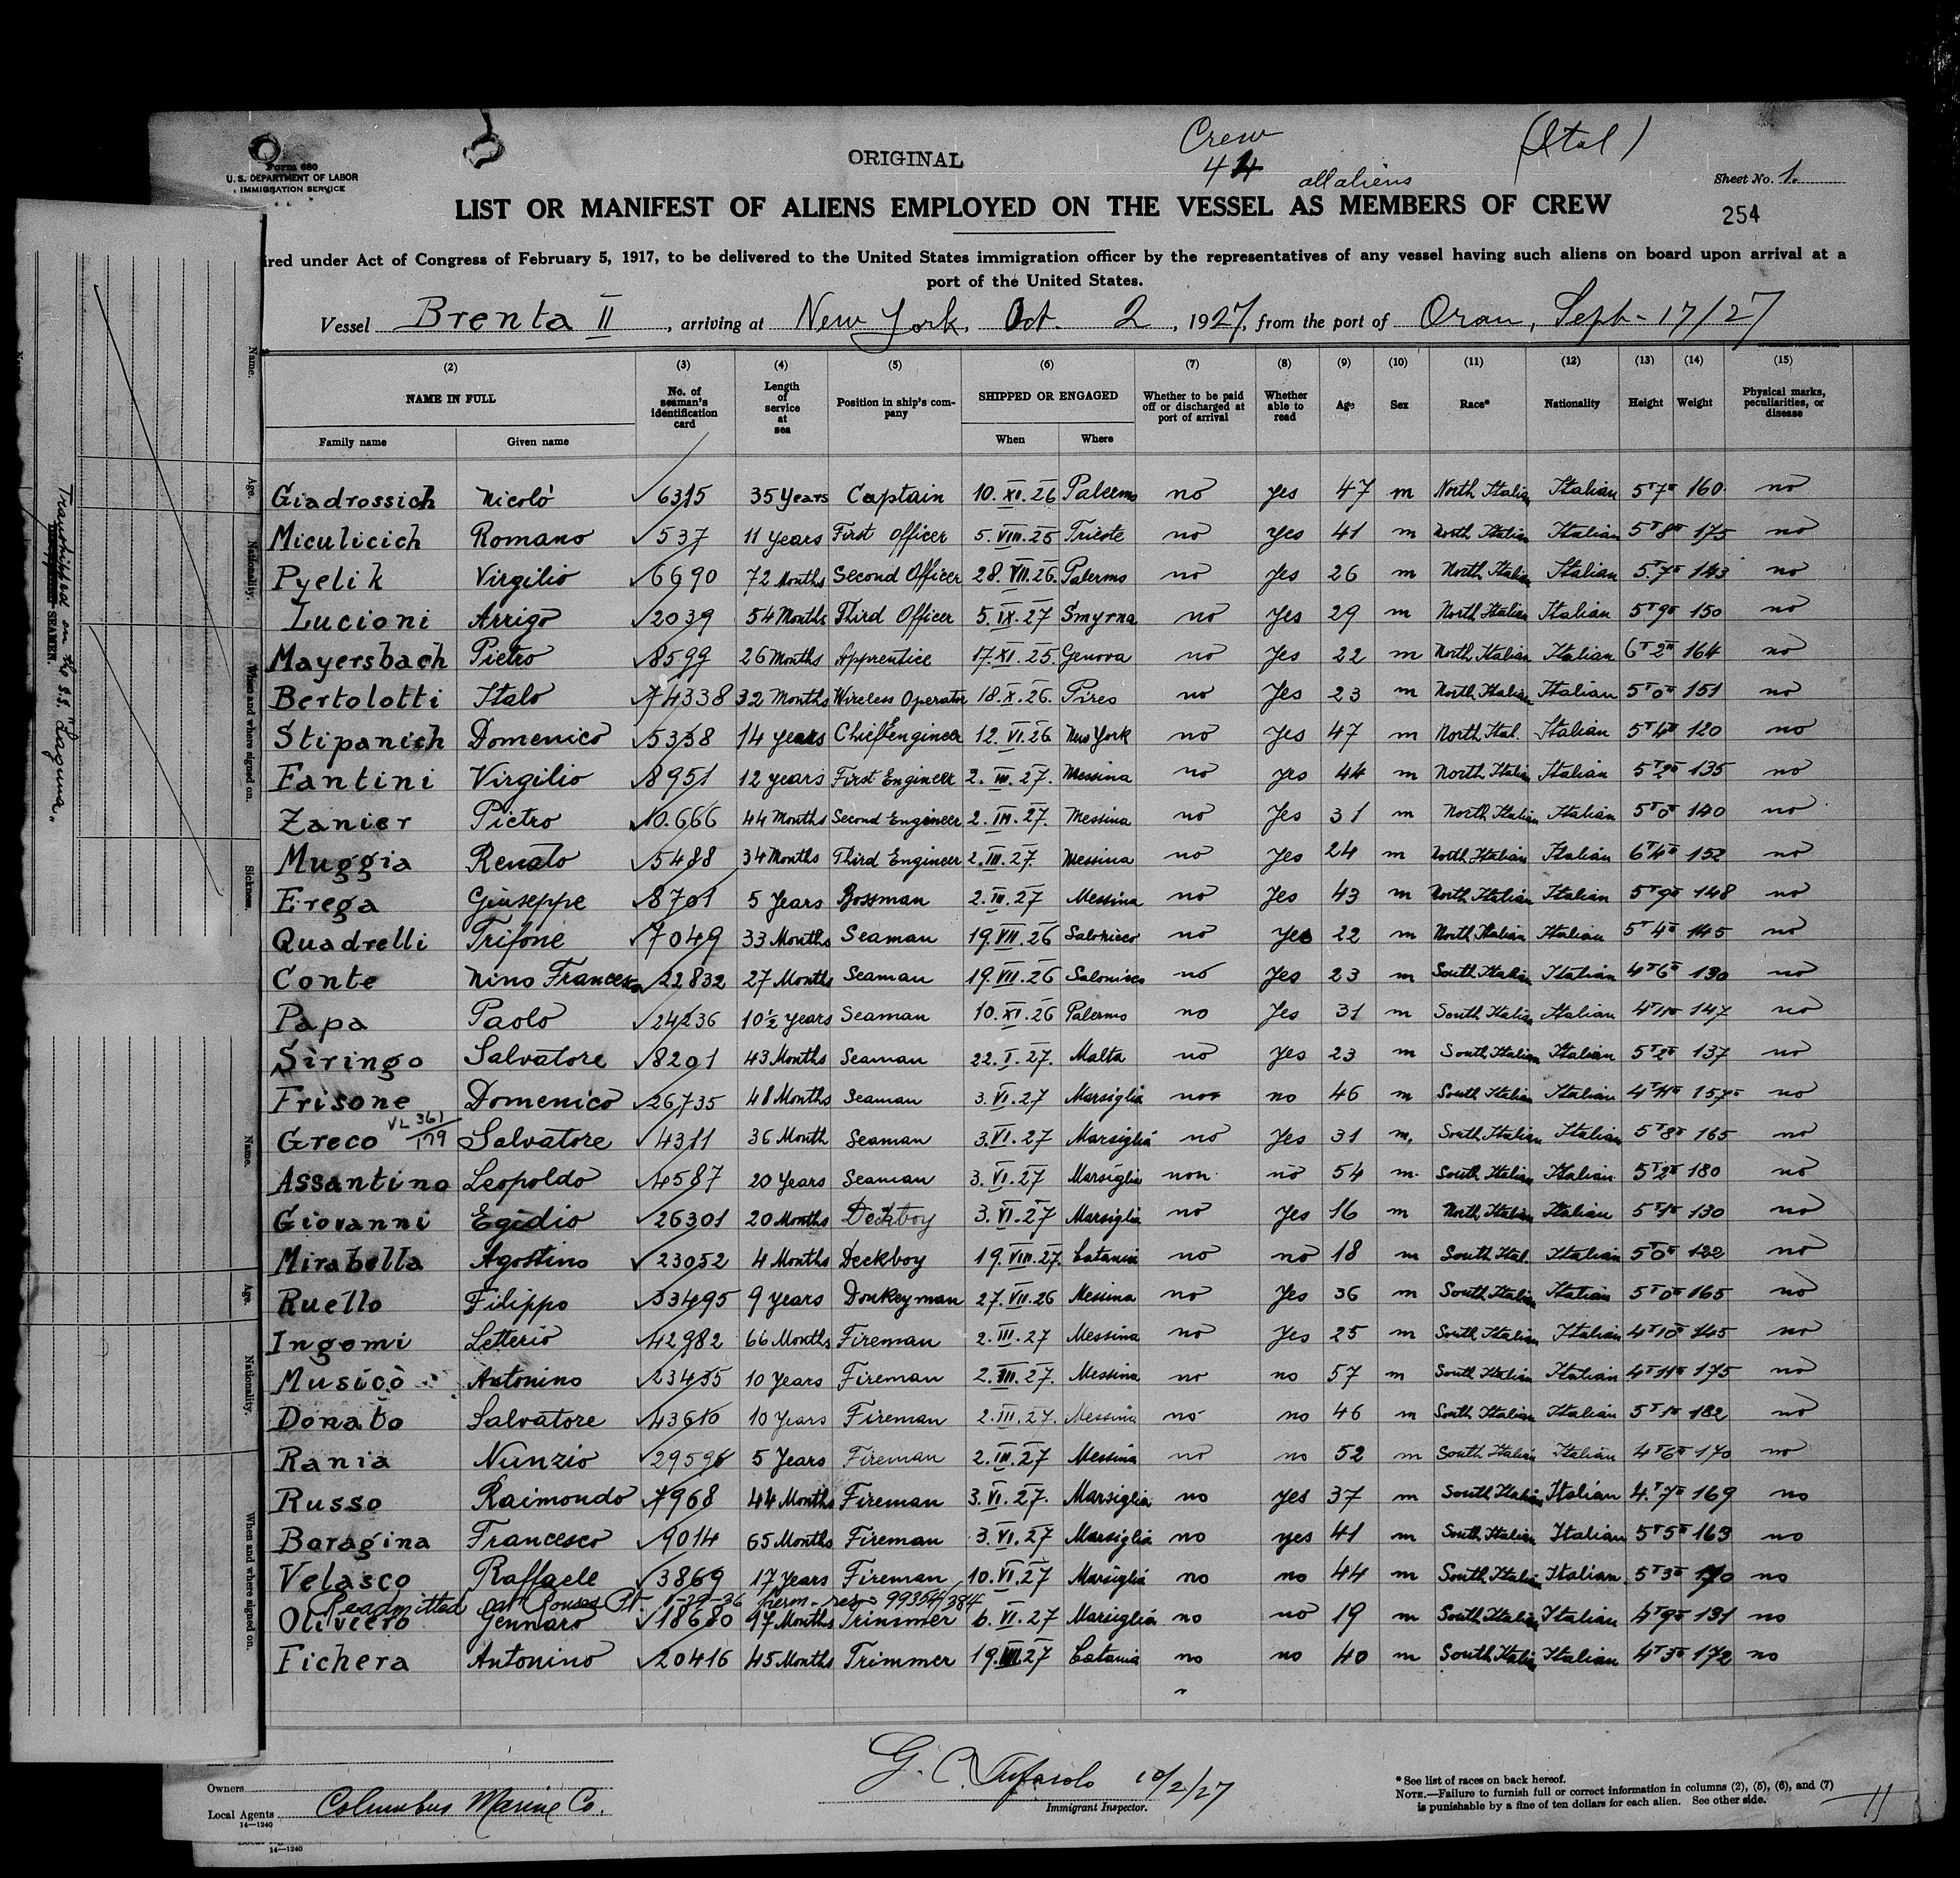 Crew
(Ital)
ORIGINAL
44
all aliens
Form 680
U. S. DEPARTMENT OF LABOR
IMMIGRATION SERVICE
Sheet No. 1.
LIST OR MANIFEST OF ALIENS EMPLOYED ON THE VESSEL AS MEMBERS OF CREW
254
ired under Act of Congress of February 5, 1917, to be delivered to the United States immigration officer by the representatives of any vessel having such aliens on board upon arrival at a
port of the United States.
Vessel Brenta II, arriving at New York, Oct. 2, 1927, from the port of Oran, Sept-17/27
(2) (3) (4) (5) (6) (7) (8) (9) (10) (11) (12) (13) (14) (15)
NAME IN FULL No. of seaman's identification card Length of service at sea Position in ship's company SHIPPED OR ENGAGED Whether to be paid off or discharged at port of arrival Whether able to read Age Sex Race* Nationality Height Weight Physical marks, peculiarities, or disease
Family name Given name When Where
Giadrossich Nicolò 6315 35 Years Captain 10.XI.26 Palermo no yes 47 m North Italian Italian 5'7" 160 no
Miculicich Romano 537 11 years First Officer 5.VIII.25 Trieste no yes 41 m North Italian Italian 5'8" 175 no
Pyelik Virgilio 6690 72 Months Second Officer 28.VII.26. Palermo no yes 26 m North Italian Italian 5'7" 143 no
Lucioni Arrigo 2039 54 Months Third Officer 5.IX.27 Smyrna no Yes 29 m North Italian Italian 5'9" 150 no
Mayersbach Pietro 8599 26 Months Apprentice 17.XI.25. Genova no Yes 22 m North Italian Italian 6'2" 164 no
Bertolotti Italo 74338 32 Months Wireless Operator 18.X.26. Pireo no Yes 23 m North Italian Italian 5'0" 151 no
Stipanich Domenico 5338 14 years Chief Engineer 12.VI.26 New York no Yes 47 m North Ital. Italian 5'4" 120 no
Fantini Virgilio 8951 12 years First Engineer 2.III.27. Messina no yes 44 m North Italian Italian 5'2" 135 no
Zanier Pietro 10.666 44 Months Second Engineer 2.III.27. Messina no Yes 31 m North Italian Italian 5'0" 140 no
Muggia Renato 5488 34 Months Third Engineer 2.III.27. Messina no Yes 24 m North Italian Italian 6'4" 152 no
Erega Giuseppe 8701 5 Years Bossman 2.III.27 Messina no Yes 43 m North Italian Italian 5'9" 148 no
Quadrelli Trifone 7049 33 Months Seaman 19.VII.26 Salonicco no Yes 22 m North Italian Italian 5'4" 145 no
Conte Nino Francesco 22832 27 Months Seaman 19.VII.26 Salonicco no Yes 23 m South Italian Italian 4'6" 130 no
Papa Paolo 24236 10½ years Seaman 10.XI.26 Palermo no Yes 31 m South Italian Italian 4'11" 147 no
Siringo Salvatore 8201 43 Months Seaman 22.I.27. Malta no Yes 23 m South Italian Italian 5'2" 137 no
Frisone Domenico 26735 48 Months Seaman 3.VI.27 Marsiglia no no 46 m South Italian Italian 4'11" 157 no
VL 361/179
Greco Salvatore 4311 36 Month Seaman 3.VI.27 Marsiglia no Yes 31 m. South Italian Italian 5'8" 165 no
Assantino Leopoldo 4587 20 Years Seaman 3.VI.27 Marsiglia non no 54 m. South Italian Italian 5'2" 180 no
Giovanni Egidio 26301 20 Months Deckboy 3.VI.27 Marsiglia no Yes 16 m North Italian Italian 5'1" 130 no
Mirabella Agostino 23052 4 Months Deckboy 19.VIII.27. Catania no no 18 m South Ital. Italian 5'0" 122 no
Ruello Filippo 33495 9 Years Donkeyman 27.VII.26 Messina no Yes 36 m South Italian Italian 5'0" 165 no
Ingemi Letterio 42982 66 Months Fireman 2.III.27 Messina no Yes 25 m South Italian Italian 4'10" 145 no
Musicò Antonino 23435 10 Years Fireman 2.III.27. Messina no no 57 m South Italian Italian 4'11" 175 no
Donato Salvatore 43610 10 Years Fireman 2.III.27. Messina no no 46 m South Italian Italian 5'1" 182 no
Rania Nunzio 29596 5 Years Fireman 2.III.27 Messina no no 52 m South Italian Italian 4'6" 170 no
Russo Raimondo 7968 44 Months Fireman 3.VI.27. Marsiglia no yes 37 m South Italian Italian 4'7" 169 no
Baragina Francesco 9014 65 Months Fireman 3.VI.27 Marsiglia no yes 41 m South Italian Italian 5'5" 163 no
Velasco Raffaele 3869 17 Years Fireman 10.VI.27 Marsiglia no no 44 m South Italian Italian 5'3" 170 no
Readmitted at Rouses Pt 1-29-36 perm-res- 99354/384
Oliviero Gennaro 18680 97 Months Trimmer 6.VI.27 Marsiglia no no 19 m South Italian Italian 4'9" 131 no
Fichera Antonino 20416 45 Months Trimmer 19.VIII.27 Catania no no 40 m South Italian Italian 4'3" 172 no
Owners
Local Agents Columbus Marine Co.
14—1240
14—1240
G. C. Tufarolo 10/2/27
Immigrant Inspector.
* See list of races on back hereof.
NOTE.—Failure to furnish full or correct information in columns (2), (5), (6), and (7)
is punishable by a fine of ten dollars for each alien. See other side.
11
Transhipped on the S.S. "Laguna"
SEAMEN.
Name.
Age.
Nationality.
When and where signed on.
Sickness.
Name.
Age.
Nationality.
When and where signed on.